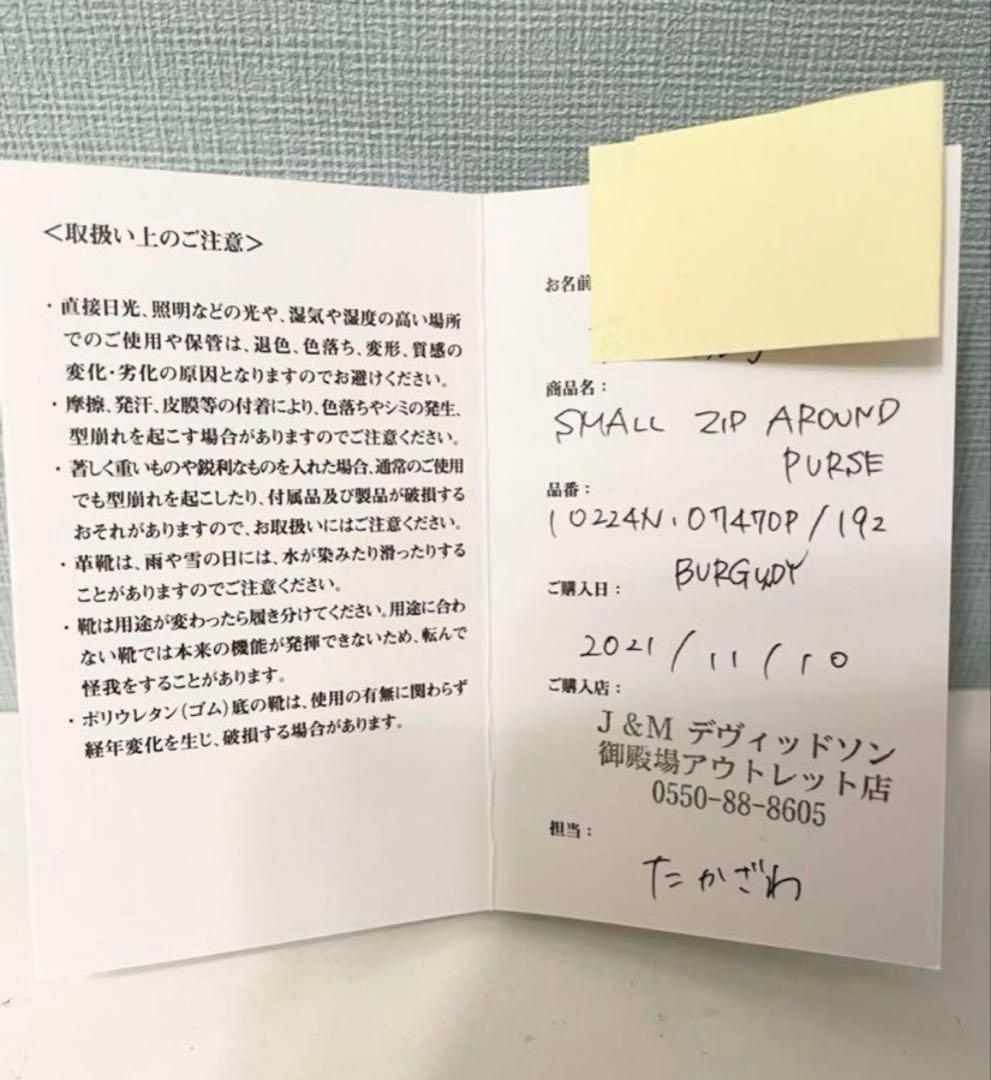 ＜取扱い上のご注意＞
・直接日光、照明などの光や、湿気や湿度の高い場所
でのご使用や保管は、退色、色落ち、変形、質感の
変化・劣化の原因となりますのでお避けください。
・摩擦、発汗、皮膜等の付着により、色落ちやシミの発生、
型崩れを起こす場合がありますのでご注意ください。
・著しく重いものや鋭利なものを入れた場合、通常のご使用
でも型崩れを起こしたり、付属品及び製品が破損する
おそれがありますので、お取扱いにはご注意ください。
・革靴は、雨や雪の日には、水が染みたり滑ったりする
ことがありますのでご注意ください。
・靴は用途が変わったら履き分けてください。用途に合わ
ない靴では本来の機能が発揮できないため、転んで
怪我をすることがあります。
・ポリウレタン(ゴム)底の靴は、使用の有無に関わらず
経年変化を生じ、破損する場合があります。
お名前
商品名：
SMALL ZIP AROUND
PURSE
品番：
10224N.07470P/192
BURGUDY
ご購入日：
2021/11/10
ご購入店：
J&M デヴィッドソン
御殿場アウトレット店
0550-88-8605
担当：
たかざわ